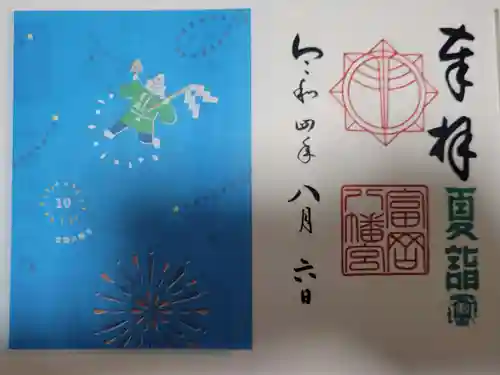 奉拝
夏詣
富岡
八幡宮
令和四年八月六日
10